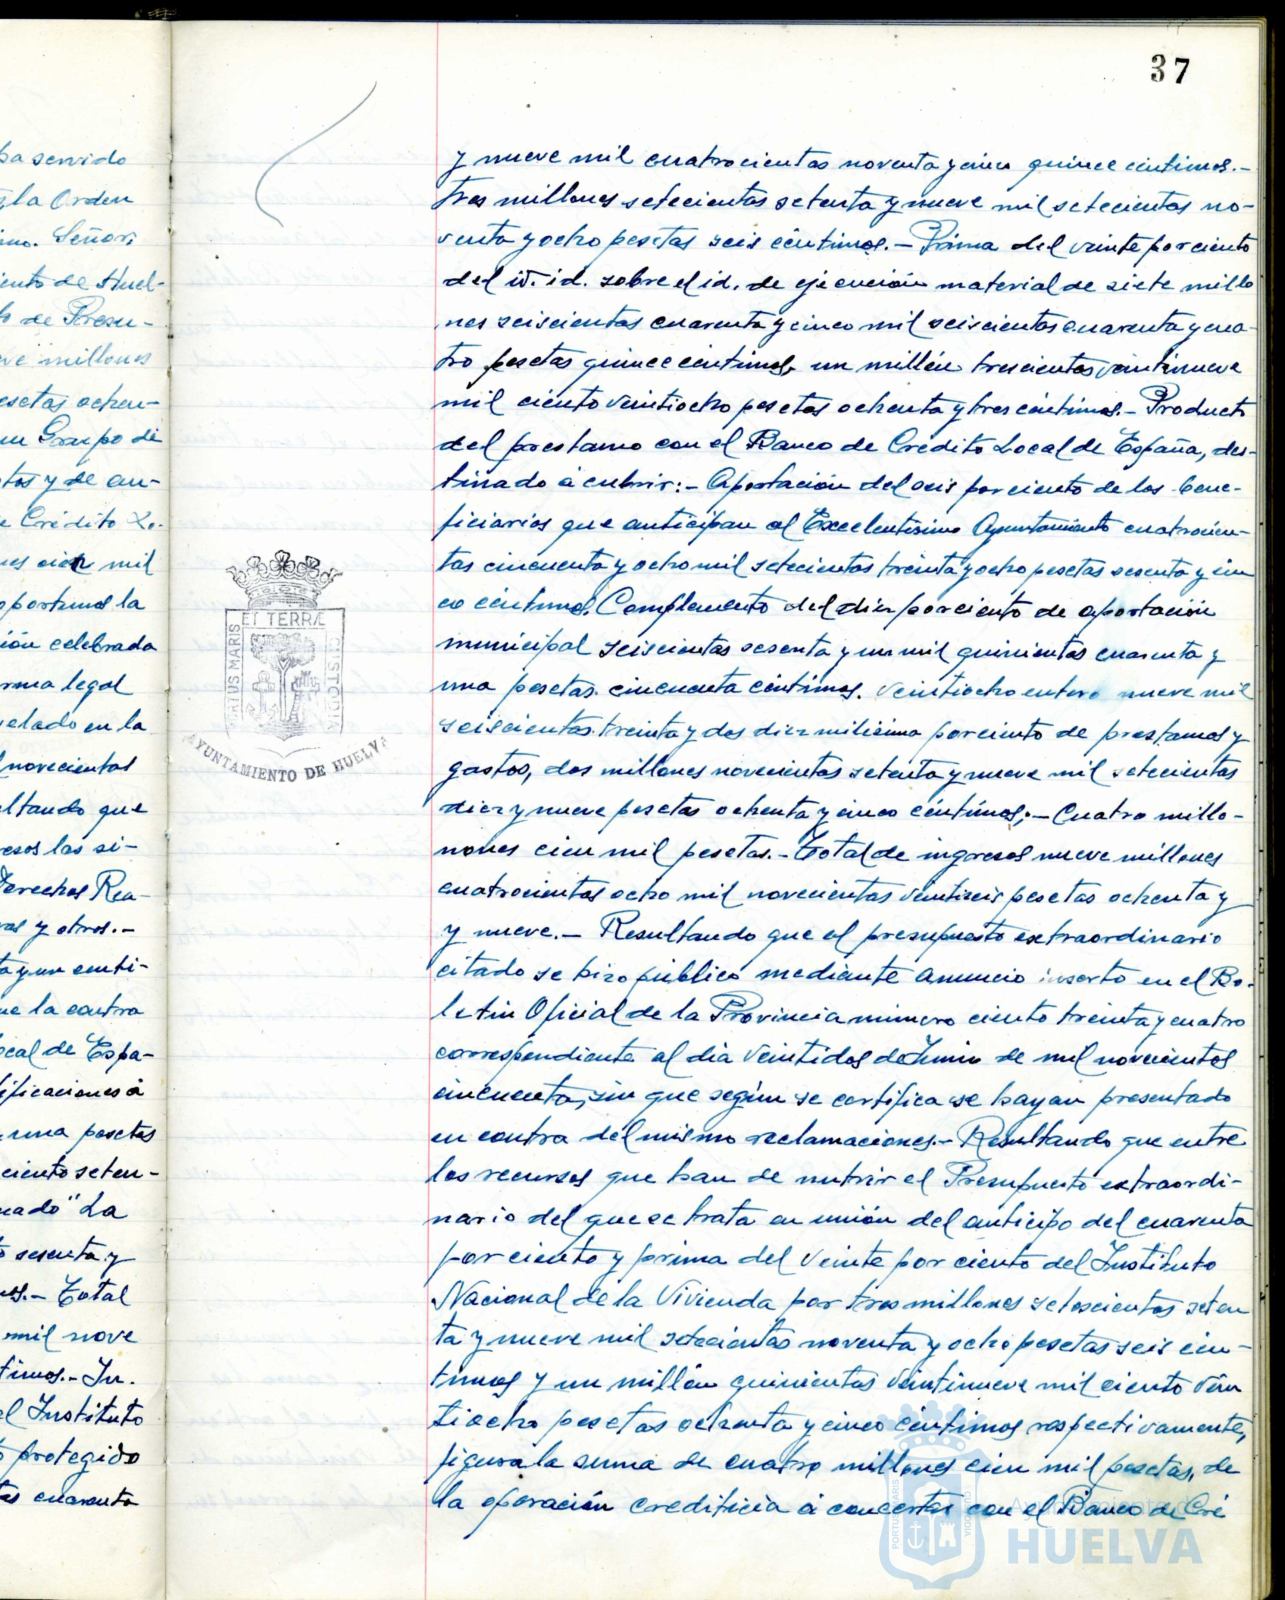 37
pa servido
la Orden
imo. Señor;
iento de Huel-
to de Presu-
ve millones
esetas ochen-
un Grupo de
tos y de an-
e Crédito Lo-
nes cien mil
oportunos la
ión celebrada
rma legal
elado en la
novecientas
ltando que
esos las si-
Derechos Rea-
ras y otros.-
ta y un centi-
ue la contra
ocal de Espa-
ificaciones á
una pesetas
ciento seten-
eado" La
to sesenta y
os.- Total
mil nove
timos.- In-
el Instituto
o protegido
tas cuarenta
y nueve mil cuatrocientas noventa y cinco quince centimos.-
tres millones setecientas setenta y nueve mil setecientas no-
venta y ocho pesetas seis céntimos.- Prima del veinte por ciento
del id. id. sobre el id. de ejecución material de siete millo
nes seiscientas cuarenta y cinco mil seiscientas cuarenta y cua-
tro pesetas quince centimos, un millón trescientas veintinueve
mil ciento veintiocho pesetas ochenta y tres céntimos.- Producto
del prestamo con el Banco de Crédito Local de España, des-
tinado á cubrir:- Aportación del seis por ciento de los bene-
ficiarios que anticipan al Excelentisimo Ayuntamiento cuatrocien-
tas cincuenta y ocho mil setecientas treinta y ocho pesetas sesenta y cin
co céntimos. Complemento del diez por ciento de aportación
municipal seiscientas sesenta y un mil quinientas cuarenta y
una pesetas cincuenta céntimos. Veintiocho entero nueve mil
seiscientas treinta y dos diez milésima por ciento de prestamos y
gastos, dos millones novecientas setenta y nueve mil setecientas
diez y nueve pesetas ochenta y cinco céntimos,- Cuatro millo-
nones cien mil pesetas.- Total de ingresos nueve millones
cuatrocientas ocho mil novecientas veintiseis pesetas ochenta y
y nueve.- Resultando que el presupuesto extraordinario
citado se hizo público mediante anuncio inserto en el Bo-
letin Oficial de la Provincia número ciento treinta y cuatro
correspondiente al día veintidos de Junio de mil novecientos
cincuenta, sin que según se certifica se hayan presentado
en contra del mismo reclamaciones.- Resultando que entre
los recursos que han de nutrir el Presupuesto extraordi-
nario del que se trata en unión del anticipo del cuarenta
por ciento y prima del veinte por ciento del Instituto
Nacional de la Vivienda por tres millones setescientas seten
ta y nueve mil setecientas noventa y ocho pesetas seis cén-
timos y un millón quinientas veintinueve mil ciento vein
tiocho pesetas ochenta y cinco céntimos respectivamente,
figura la suma de cuatro millones cien mil pesetas, de
la operación crediticia á concertar con el Banco de Cré
PORTUS MARIS
ET TERRÆ
CUSTODIA
AYUNTAMIENTO DE HUELVA
Ayuntamiento de
HUELVA